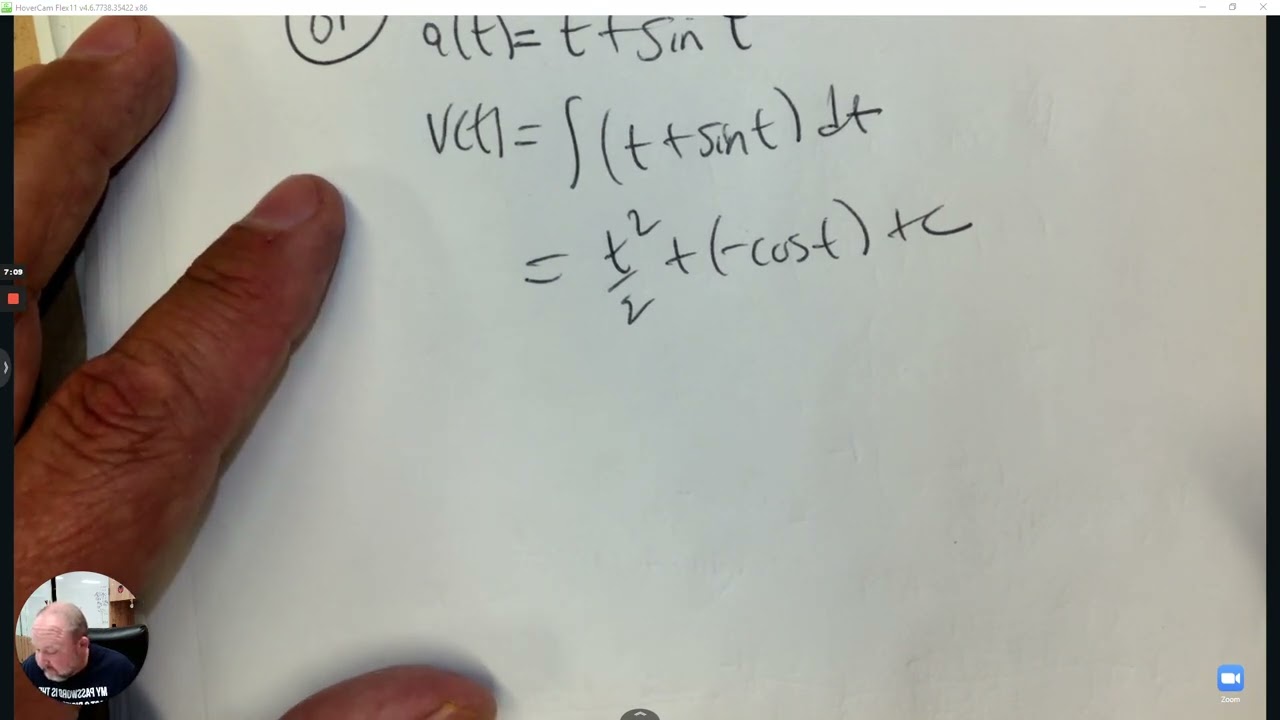 HoverCam Flex11 v4.6.7738.35422 x86
a(t)= t + sin t
v(t) = ∫ (t + sin t) dt
7:09
= t²/2 + (-cos t) + c
MY PASSWORD IS THE
Zoom